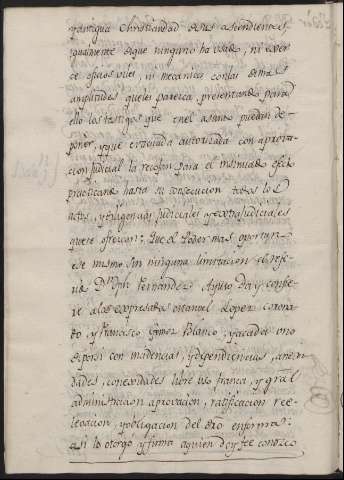 y antigua Christiandad de sus ascendientes
igualmente de que ninguno ha usado, ni exer-
 oficios viles, ni mecanicos con las demas
amplitudes que les paresca, presentando para
ello los testigos que en el asunto puedan de-
poner, y que evacuada autorizada con aprova-
cion judicial la recojan para el insinuado efecto
practicando hasta su consecucion todos los
 judiciales y extrajudiciales
que se ofrescan: Que el Poder mas oportuno
ese mismo sin ninguna limitacion
 Dn. Fernandez da y confie-
re a los expresados Manuel Lopez
 y Francisco Gomez Blanco, y a cada uno
de por si con incidencias, y dependiencias, anexi-
dades, conexidades libre uso franca, y gral
administracion aprovacion, ratificacion rele-
vacion, y obligacion del dro en forma:
asi lo otorgo y firma a quien doy fee conozco